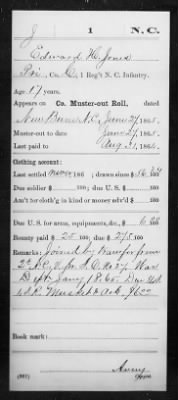 J 1 N.C.
Edward H. Jones
Pvt., Co. C, 1 Reg't N. C. Infantry.
Age 17 years.
Appears on Co. Muster-out Roll, dated
New Berne N.C., June 27, 1865.
Muster-out to date June 27, 1865.
Last paid to Aug 31, 1864.
Clothing account:
Last settled never, 186 ; drawn since $
Due soldier $ 100; due U. S. $ 100
Am't for cloth'g in kind or money adv'd $ 100
Due U. S. for arms, equipments, &c., $ 100
Bounty paid $ 25 100; due $ 275 100
Remarks: Joined by transfer from
2d N.C. Vols. S.O. No 27 War
Dept Jany 18/65. Due U.S.
Musket & Acct 9600
Book mark:
Avery
(857) Copyist.